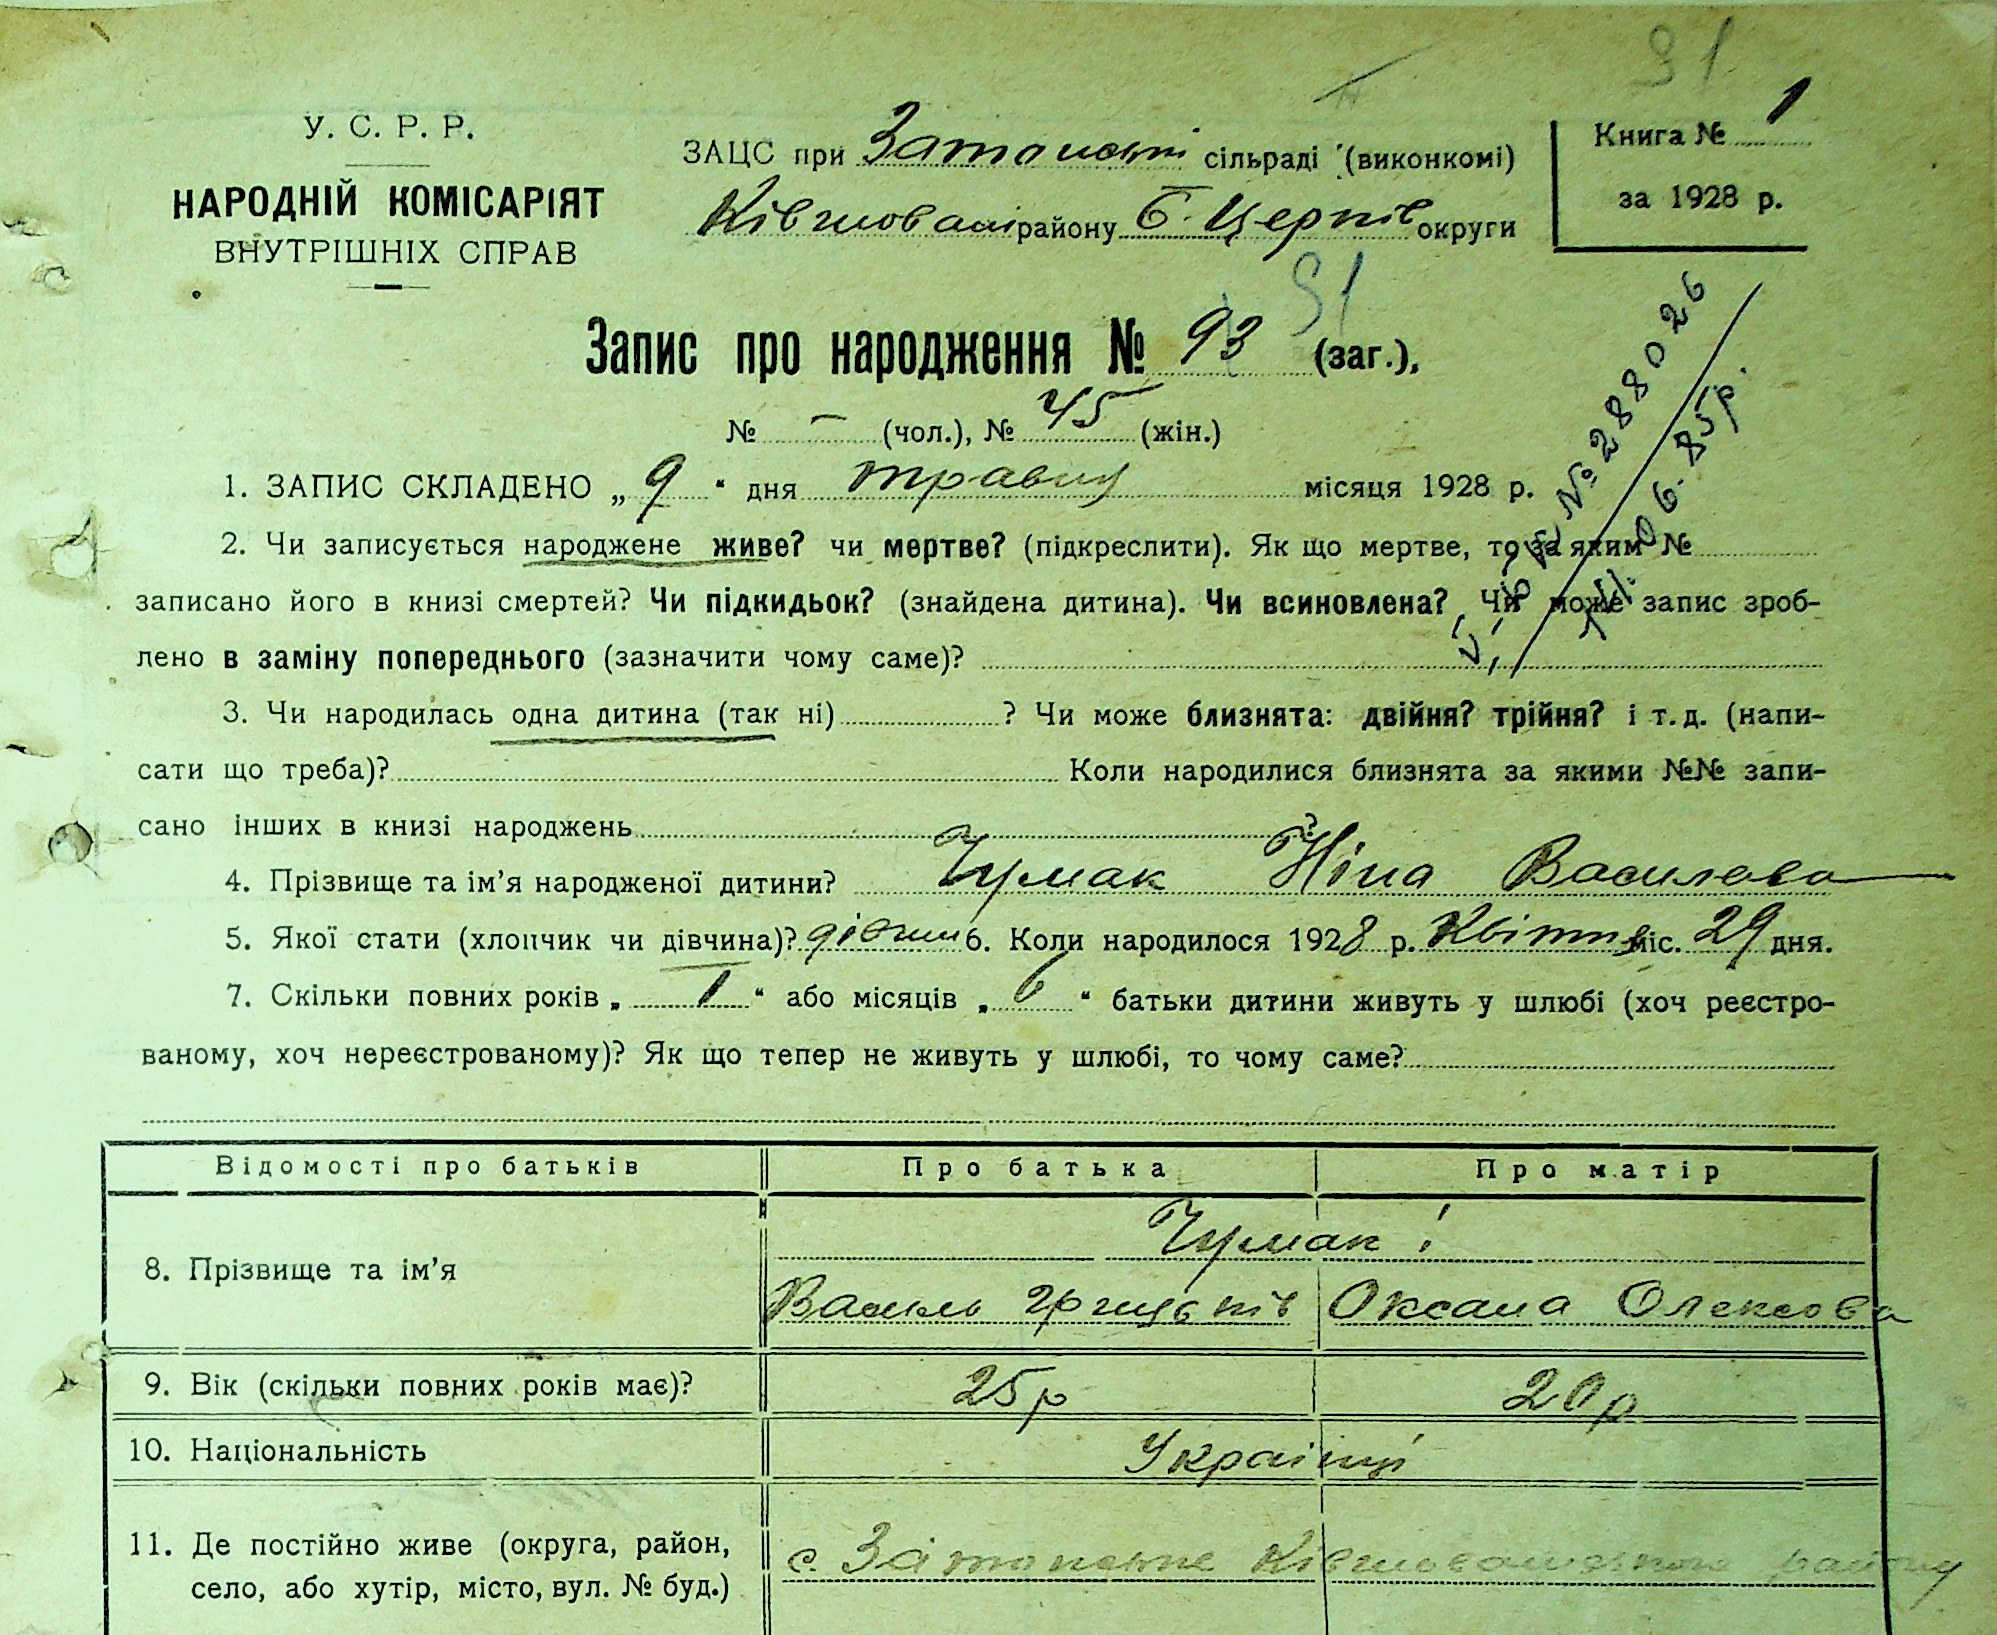 91
У. С. Р. Р.
НАРОДНІЙ КОМІСАРІЯТ
ВНУТРІШНІХ СПРАВ
ЗАЦС при сільраді (виконкомі)
району Б. Церків округи
Книга № 1
за 1928 р.
91
Запис про народження № 93 (заг.),
№ – (чол.), № 45 (жін.)
№ 288026
06.85р.
1. ЗАПИС СКЛАДЕНО „ 9 “ дня травня місяця 1928 р.
2. Чи записується народжене живе? чи мертве? (підкреслити). Як що мертве, то за яким №
записано його в книзі смертей? Чи підкидьок? (знайдена дитина). Чи всиновлена? Чи може запис зроб-
лено в заміну попереднього (зазначити чому саме)?
3. Чи народилась одна дитина (так ні) ? Чи може близнята: двійня? трійня? і т. д. (напи-
сати що треба)? Коли народилися близнята за якими №№ запи-
сано інших в книзі народжень ?
4. Прізвище та ім’я народженої дитини? Чумак Ніна Василева
5. Якої стати (хлопчик чи дівчина)? дівчин 6. Коли народилося 1928 р. Квітня міс. 29 дня.
7. Скільки повних років „ 1 “ або місяців „ “ батьки дитини живуть у шлюбі (хоч реєстро-
ваному, хоч нереєстрованому)? Як що тепер не живуть у шлюбі, то чому саме?
Відомості про батьків Про батька Про матір
8. Прізвище та ім’я Чумак і
Василь Грицьків Оксана Олексова
9. Вік (скільки повних років має)? 25р 20р
10. Національність Українці
11. Де постійно живе (округа, район,
село, або хутір, місто, вул. № буд.) с. району